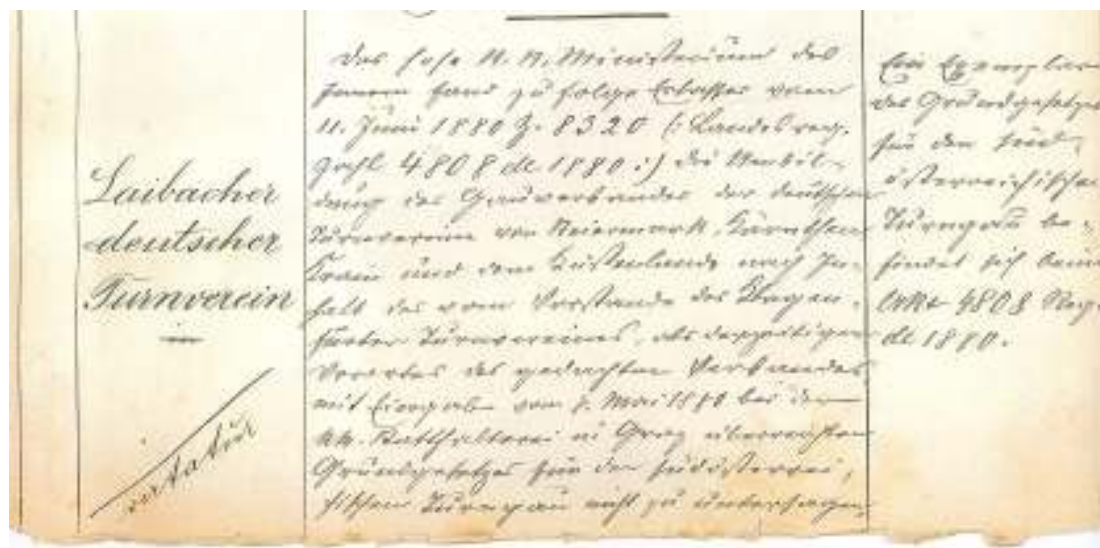 Laibacher
deutscher
Turnverein
Das hohe k. k. Ministerium des
Innern fand zu folge Erlasses vom
11. Juni 1880 Z. 8320 (: Landesreg.
Zahl 4808 de 1880 :) die Umbil-
dung des Gauverbandes der deutschen
Turnvereine von Steiermark, Kärnthen
Krain und dem Küstenlande nach In-
halt des vom Vorstande des Klagen-
furter Turnvereines, als derzeitigen
Vorortes des gedachten Verbandes
mit Eingabe vom Mai 1880 bei der
kk. Statthalterei in Graz überreichten
Grundgesetzes für den südösterrei-
chischen Turngau nicht zu untersagen
Ein Exemplar
des Grundgesetzes
für den süd-
österreichischen
Turngau be-
findet sich beim
Akt 4808 Reg.
de 1880.